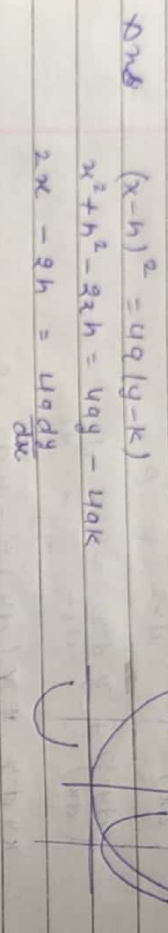 Ans (x-h)² = 4a(y-k)
x² + h² - 2xh = 4ay - 4ak
2x - 2h = 4a dy/dx